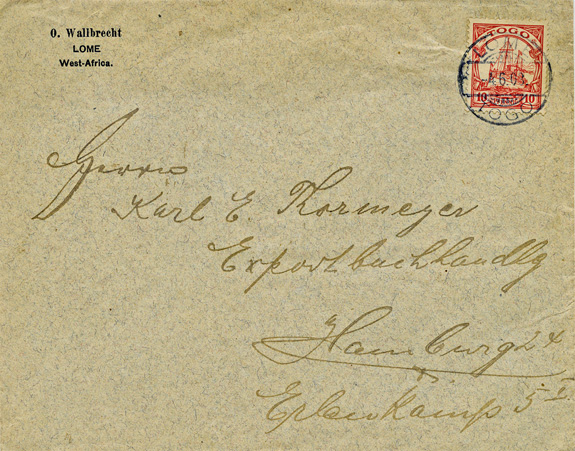 O. Wallbrecht
LOME
West-Africa.
TOGO
10 10
LOME
4.6.03.
TOGO
Herrn
Karl E. Thormeyer
Exportbuchhandlg
Hamburg 24
Erlenkamp 5 I.